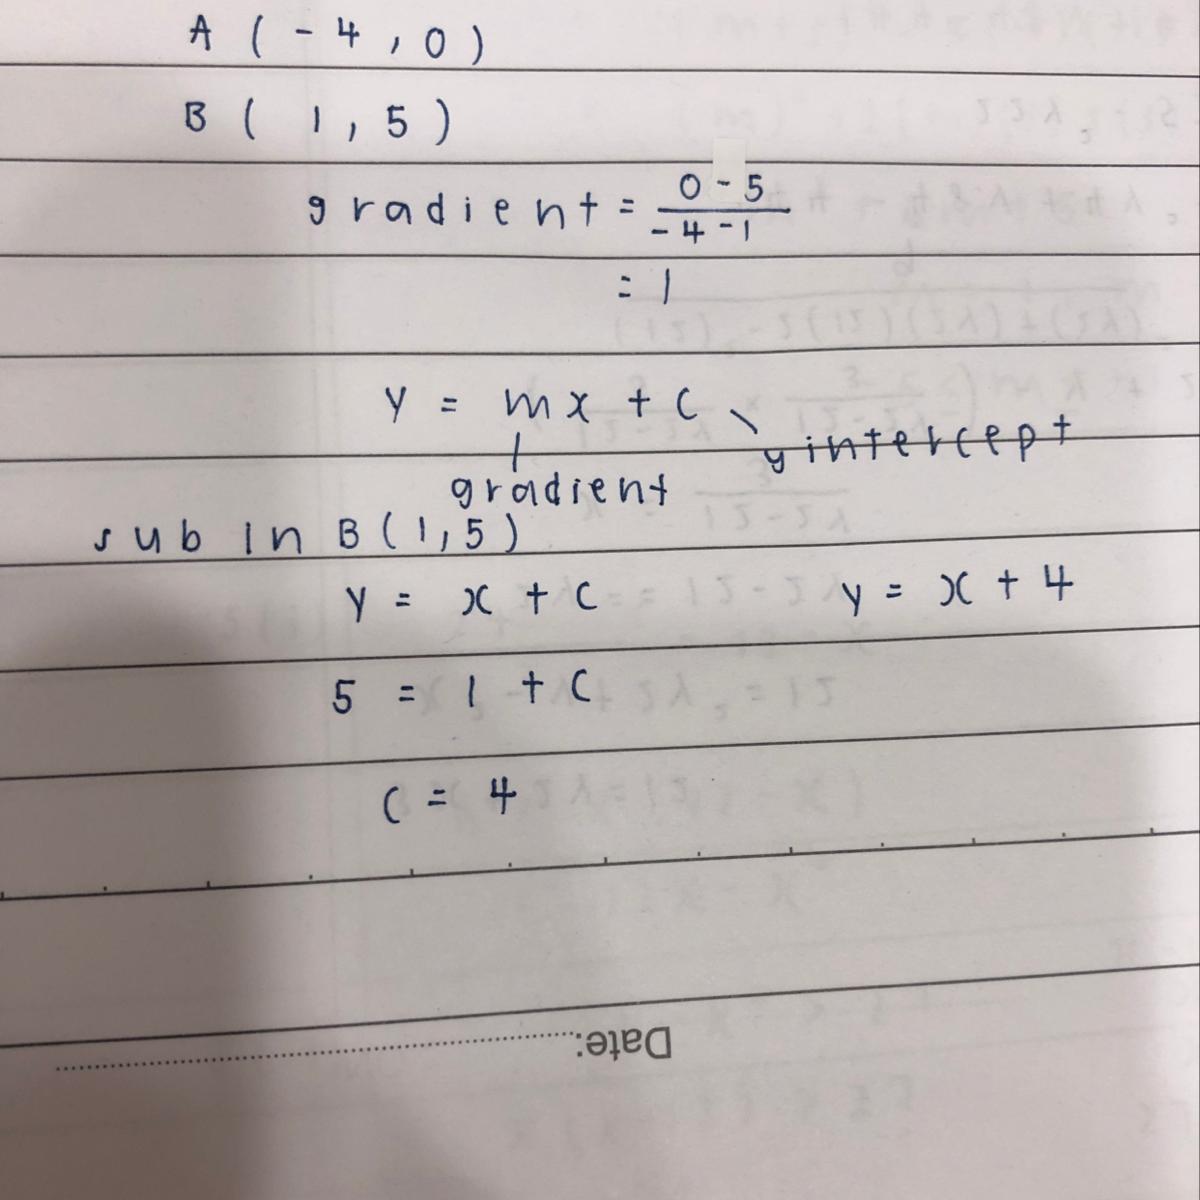 A ( - 4 , 0 )
B ( 1 , 5 )
gradient = 0 - 5 / - 4 - 1
= 1
y = mx + c
y intercept
gradient
sub in B ( 1 , 5 )
y = x + c
y = x + 4
5 = 1 + c
c = 4
Date: